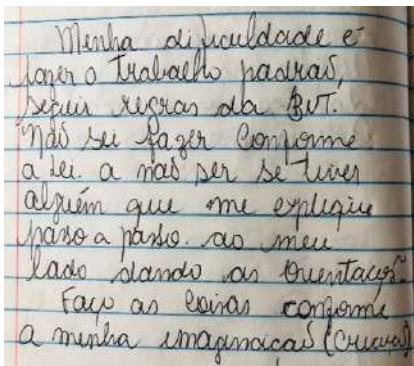 Minha dificuldade é
fazer o trabalho padraõ,
seguir regras da BNT.
naõ sei fazer conforme
a lei. a naõ ser se tiver
alguém que me explique
passo a passo. ao meu
lado dando as orientações.
Faço as coisas conforme
a minha imaginacaõ (Criativa)